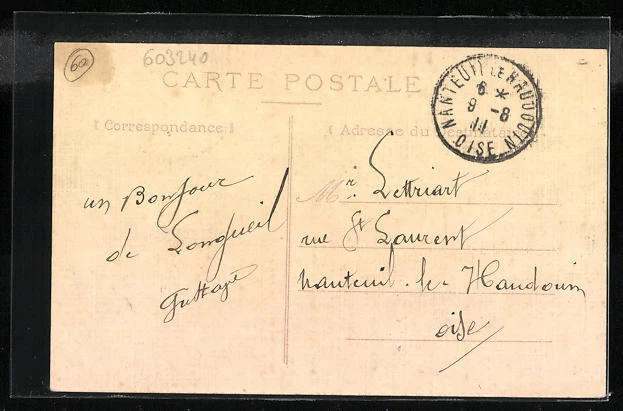 60
603240
CARTE POSTALE
NANTEUIL LE HAUDOUIN
6 *
9 - 8
11
OISE
(Correspondance)
(Adresse du Destinataire)
un Bonjour
de Longueil
Mr. Lettriart
rue St Laurent
Nanteuil-le-Haudouin
oise